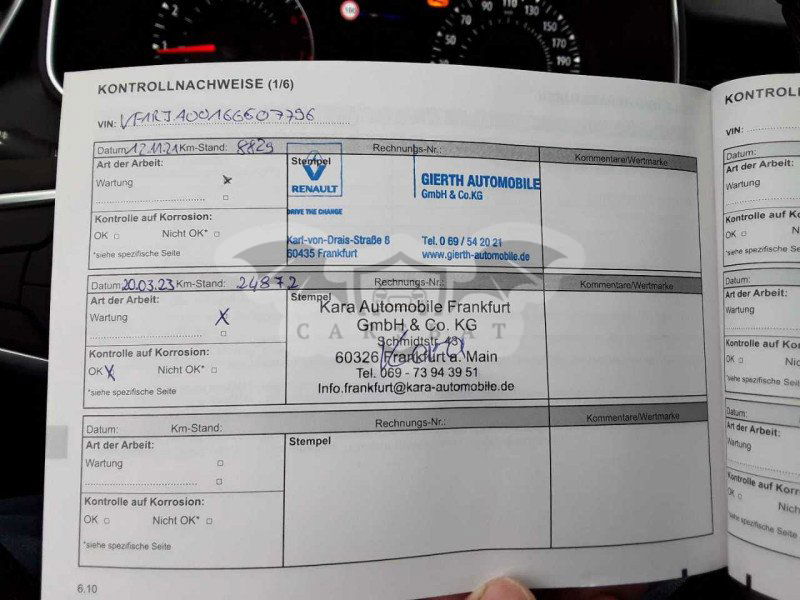 2
1
100
30
50
70
90
110
130
150
170
190
KONTROLLNACHWEISE (1/6)
VIN: VF1RJA00166607796
Datum: 12.11.21 Km-Stand: 8829 Rechnungs-Nr.: Kommentare/Wertmarke
Art der Arbeit:
Wartung x
Kontrolle auf Korrosion:
OK □ Nicht OK* □
*siehe spezifische Seite
Stempel
RENAULT
DRIVE THE CHANGE
GIERTH AUTOMOBILE
GmbH & Co.KG
Karl-von-Drais-Straße 8 Tel. 0 69 / 54 20 21
60435 Frankfurt www.gierth-automobile.de
Datum: 20.03.23 Km-Stand: 24872 Rechnungs-Nr.: Kommentare/Wertmarke
Art der Arbeit:
Wartung X
Kontrolle auf Korrosion:
OK X Nicht OK* □
*siehe spezifische Seite
Stempel
Kara Automobile Frankfurt
GmbH & Co. KG
Schmidtstr. 43
60326 Frankfurt a. Main
Tel. 069 - 73 94 39 51
Info.frankfurt@kara-automobile.de
Datum: Km-Stand: Rechnungs-Nr.: Kommentare/Wertmarke
Art der Arbeit:
Wartung □
Kontrolle auf Korrosion:
OK □ Nicht OK* □
*siehe spezifische Seite
Stempel
6.10
KONTROLL
VIN:
Datum:
Art der Arbeit:
Wartung
Kontrolle auf Korr
OK □
*siehe spezifische Seite
Datum:
Art der Arbeit:
Wartung
Kontrolle auf Korros
OK □ N
*siehe spezifische Seite
Datum:
Art der Arbeit:
Wartung
Kontrolle auf Korrosio
OK □ Nich
*siehe spezifische Seite